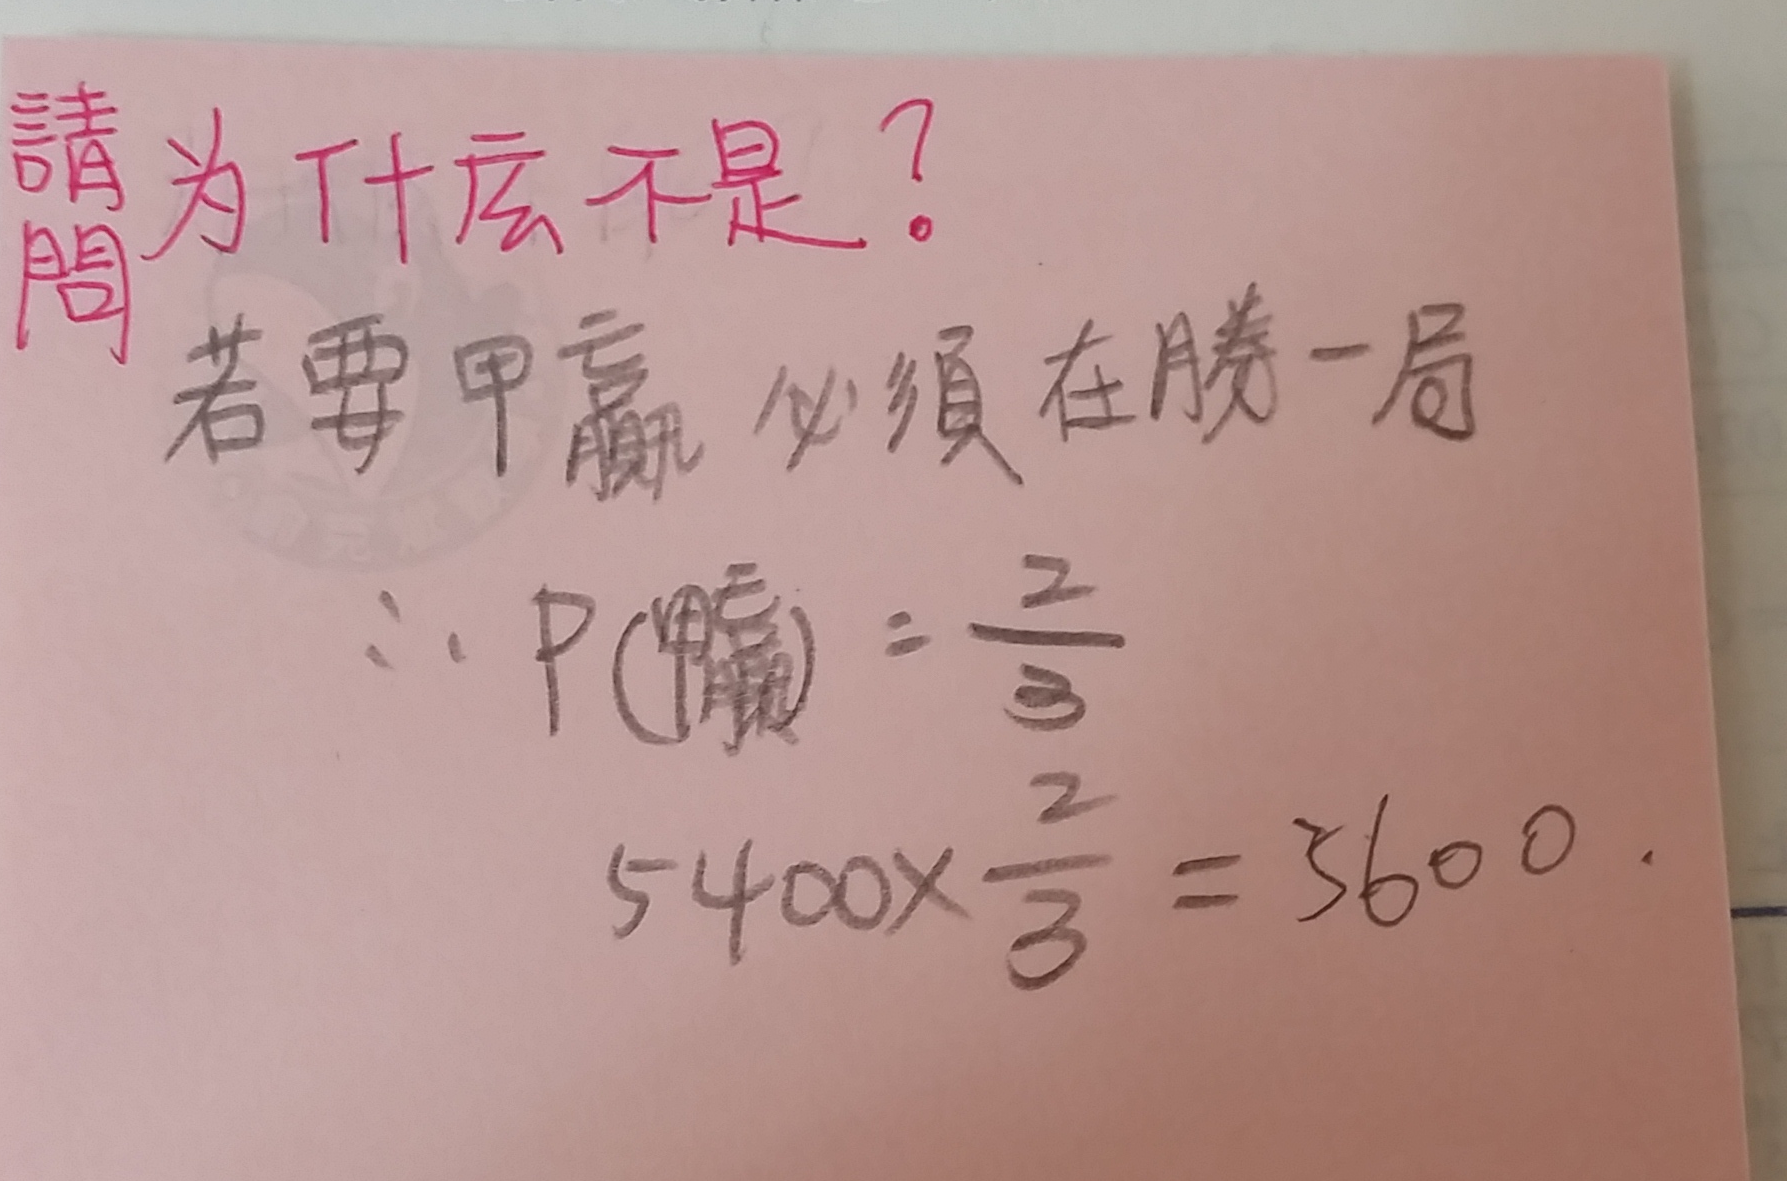 請問
为什庅不是？
若要甲贏必須在勝一局
∴ P(甲贏) = 2/3
5400 × 2/3 = 3600.